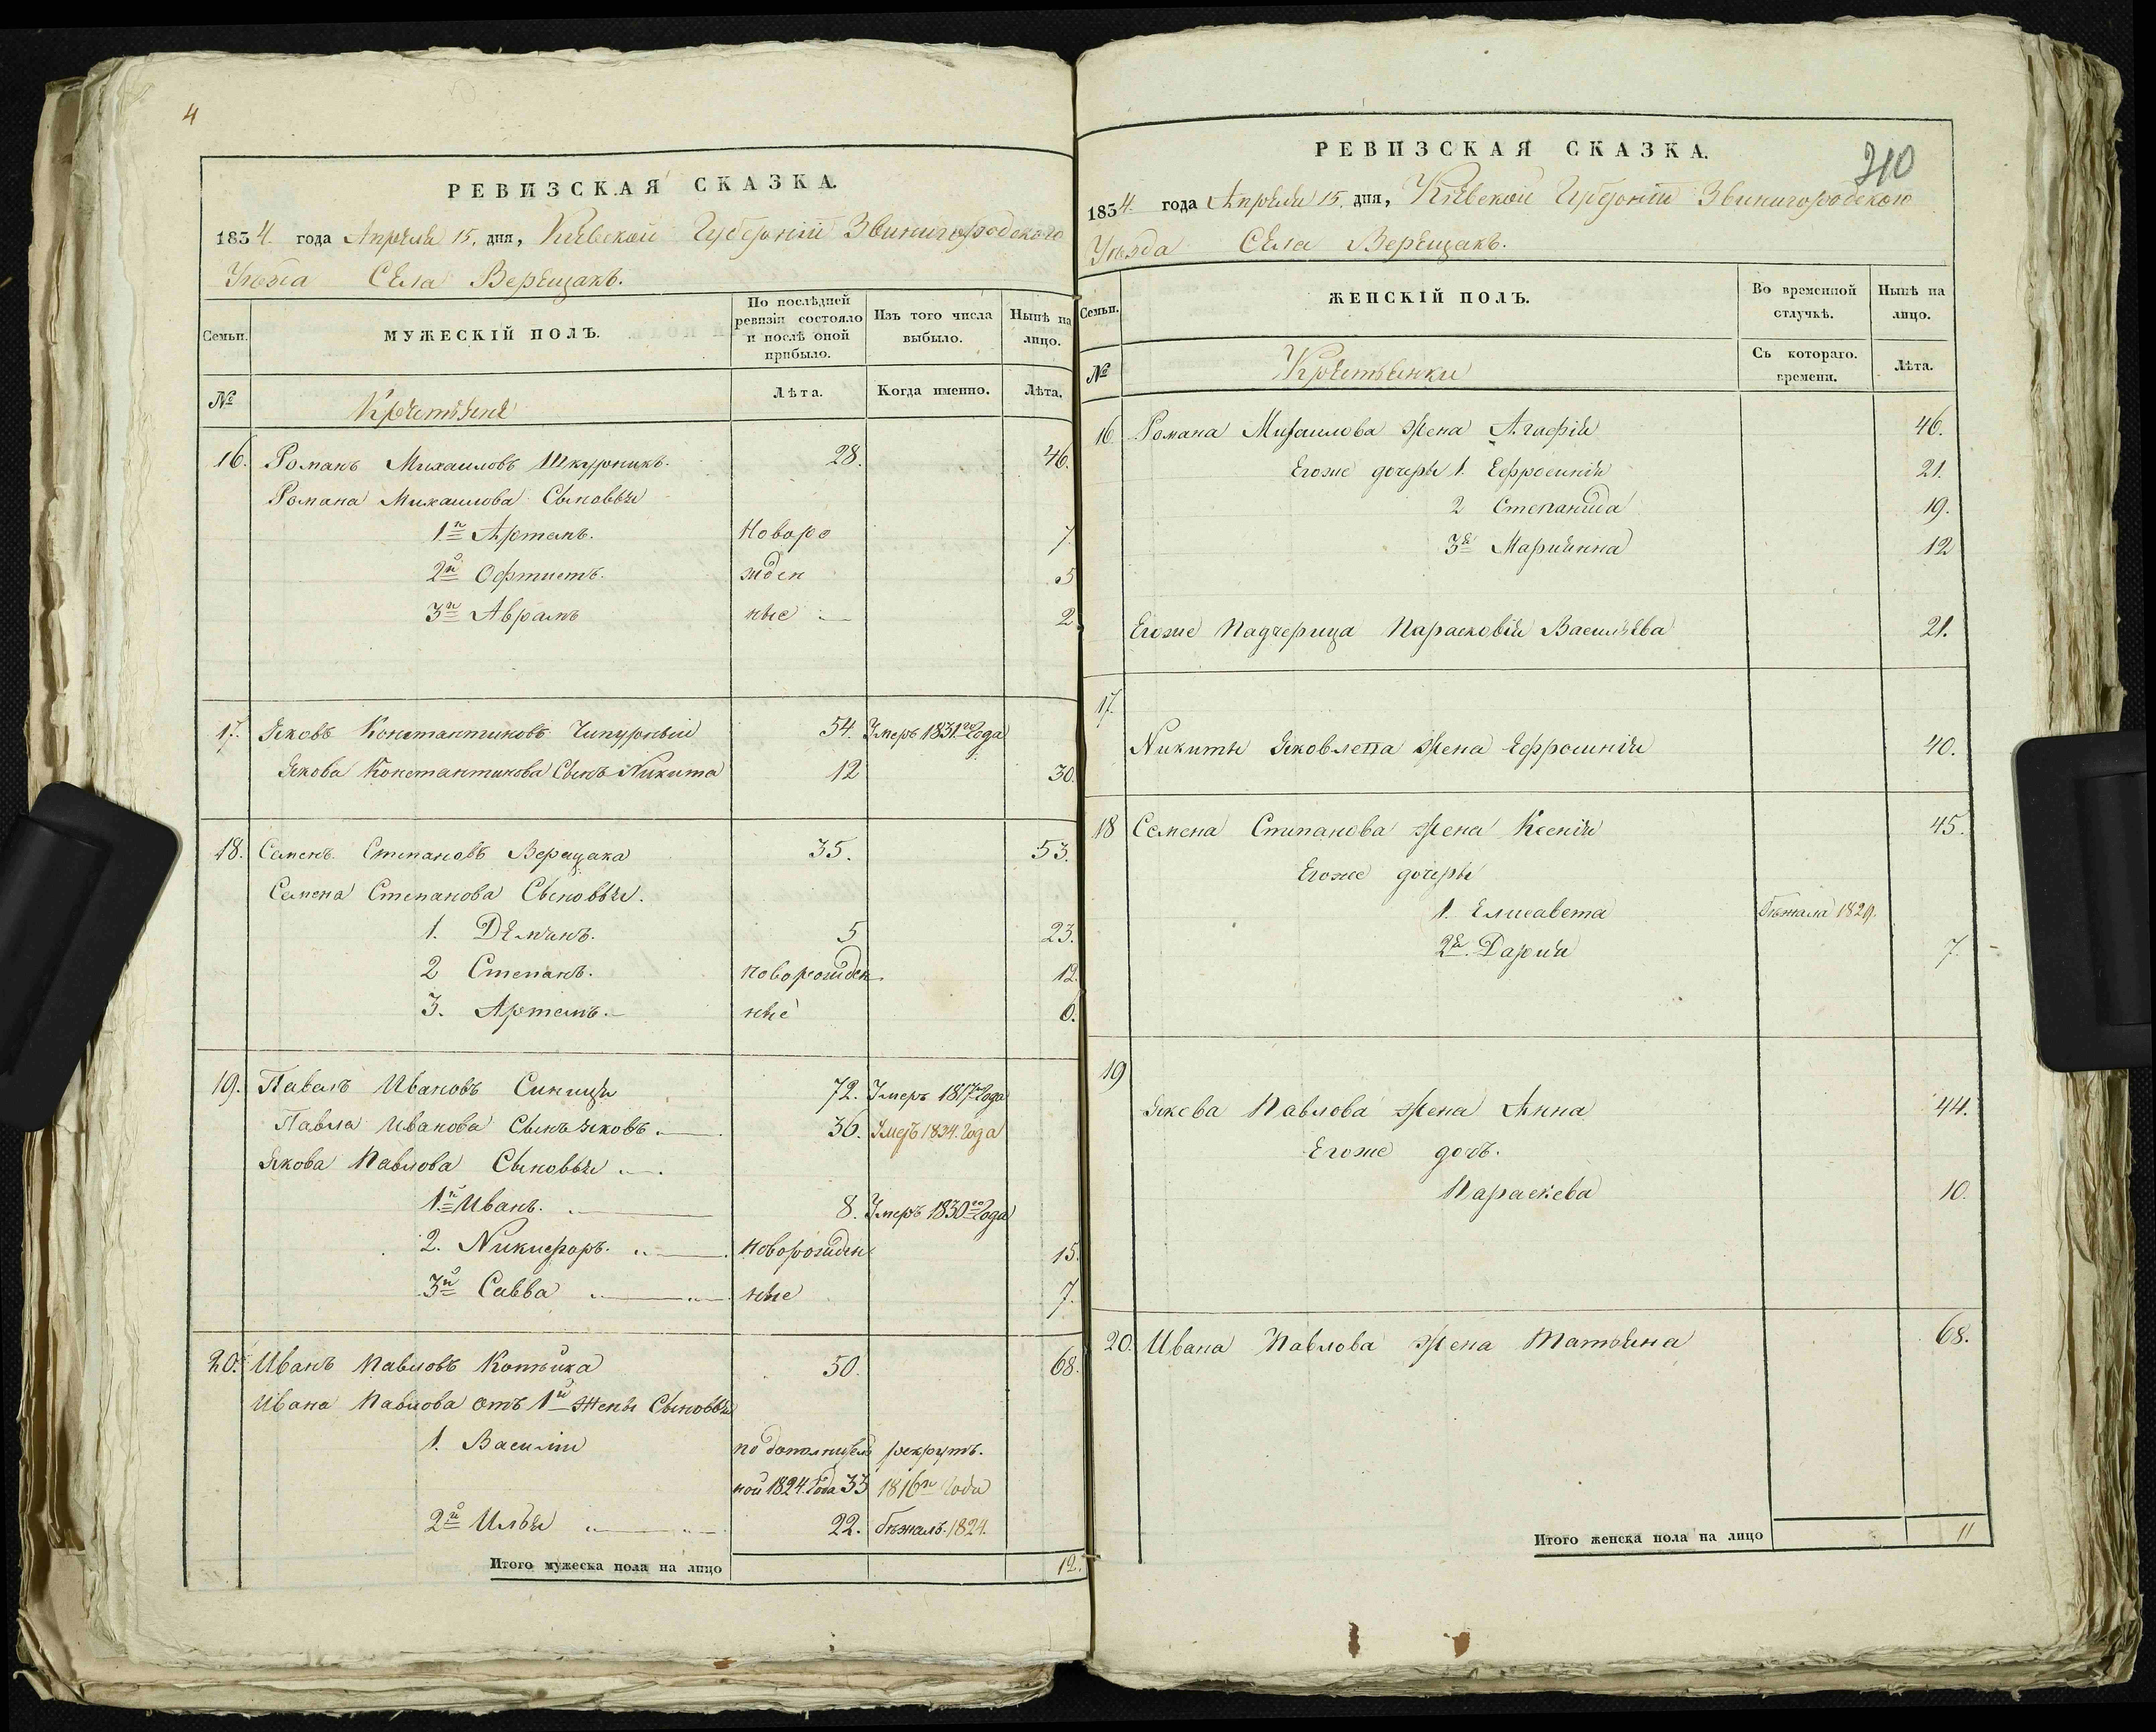 4
РЕВИЗСКАЯ СКАЗКА.
1834. года Апреля 15. дня, Кіевской Губерніи Звинигородского
Уезда Села Верещакъ.
Семьи.
МУЖЕСКІЙ ПОЛЪ.
По послѣдней ревизіи состояло и послѣ оной прибыло.
Изъ того числа выбыло.
Нынѣ на лицо.
№
Крестьяне
Лѣта.
Когда именно.
Лѣта.
16. Романъ Михаиловъ Шкурникъ. 28. 46.
Романа Михаилова Сыновья
1й Артемъ. Новоро 7.
2й Офтиетъ. жден 5
3й Аврамъ ные 2
17. Яковъ Константиновъ Чипурный 54. Умеръ 1831го Года
Якова Константинова Сынъ Никита 12 30.
18. Семенъ Степановъ Верещака 35. 53.
Семена Степанова Сыновья.
1. Демянъ. 5 23.
2 Степанъ. новорожден 12.
3. Артемъ. ные 6.
19. Павелъ Ивановъ Синица 72. Умеръ 1817го Года
Павла Иванова Сынъ Яковъ. 36. Умеръ 1834. Года
Якова Павлова Сыновья
1й Иванъ. 8. Умеръ 1830го Года
2. Никифоръ. новорожден 15.
3й Савва ные 7.
20. Иванъ Павловъ 50. 68.
Ивана Павлова отъ 1й жены Сыновья
1. Василій по дополнитель рекрутъ.
ной 1824. Года 33 1816го Года
2й Илья 22. бежалъ. 1824.
Итого мужеска пола на лицо 12.
210
РЕВИЗСКАЯ СКАЗКА.
1834. года Апреля 15. дня, Кіевской Губерніи Звинигородского
Уезда Села Верещакъ.
Семьи.
ЖЕНСКІЙ ПОЛЪ.
Во временной отлучкѣ.
Нынѣ на лицо.
№
Крестьянки
Съ котораго. времени.
Лѣта.
16. Романа Михаилова жена Агафія 46.
Егоже дочеры 1. Ефросинія 21.
2 Степанида 19.
3я Маріянна 12
Егоже Падчерица Парасковія Васильева 21.
17.
Никиты Яковлева жена Ефросинія 40.
18 Семена Степанова жена Ксенія 45.
Егоже дочеры
1. Елисавета бежала 1829.
2я. Дарія 7.
19
Якова Павлова жена Анна 44.
Егоже дочъ.
Параскева 10.
20. Ивана Павлова жена Татьяна 68.
Итого женска пола на лицо 11